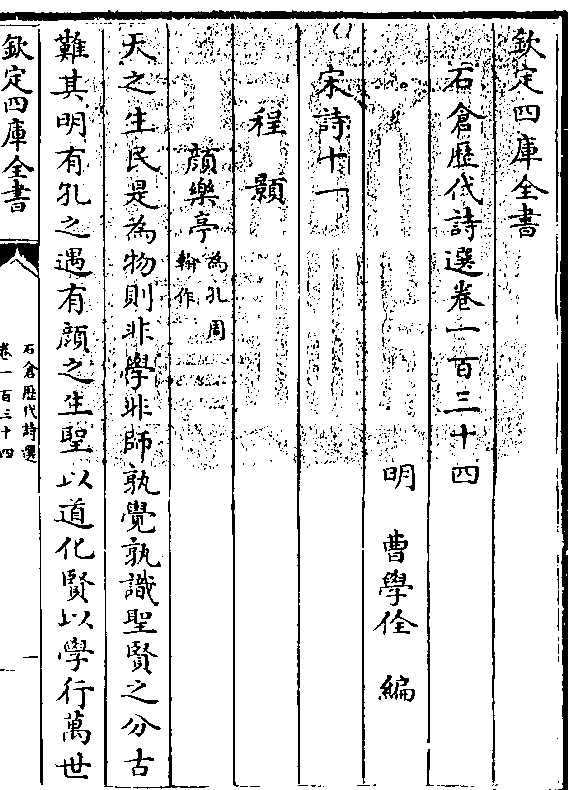 欽定四庫全書
石倉歷代詩選卷一百三十四
明　曹學佺　編
宋詩十一
程顥
顔樂亭 為孔周
翰作
天之生民是為物則非學非師孰覺孰識聖賢之分古
難其明有孔之遇有顔之生聖以道化賢以學行萬世
欽定四庫全書
石倉歷代詩選
卷一百三十四